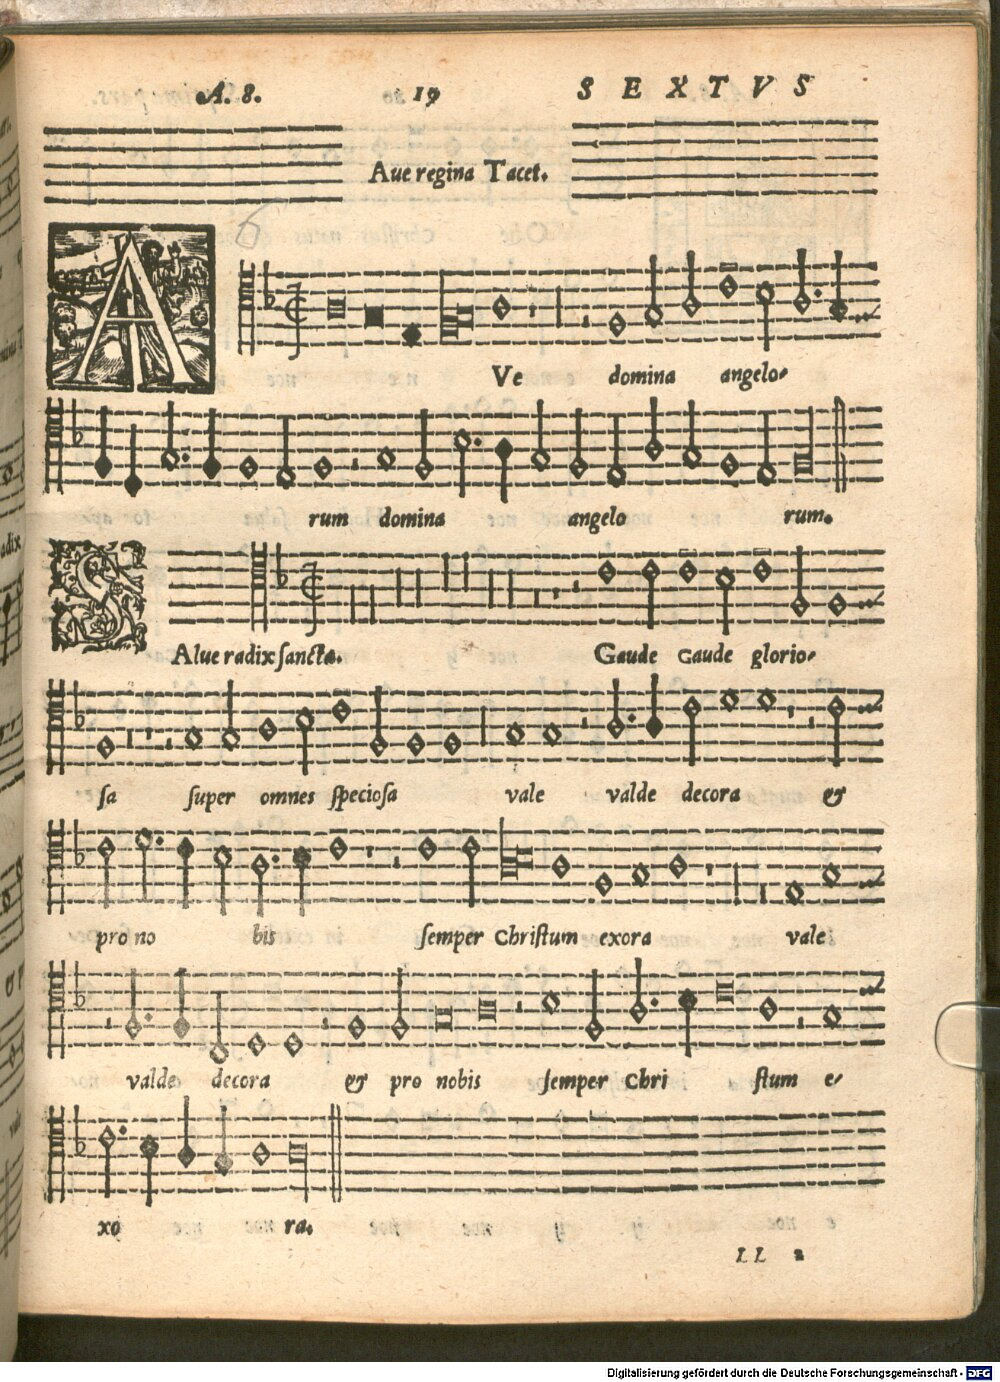 A. 8. 19 SEXTVS
Aue regina Tacet.
AVe domina angelo-
rum domina angelo rum.
SAlue radix sancta. Gaude Gaude glorio-
sa super omnes speciosa vale valde decora &
pro no bis semper Christum exora vale
valde decora & pro nobis semper Chri stum e-
xo ra.
LL 2
Digitalisierung gefördert durch die Deutsche Forschungsgemeinschaft - DFG